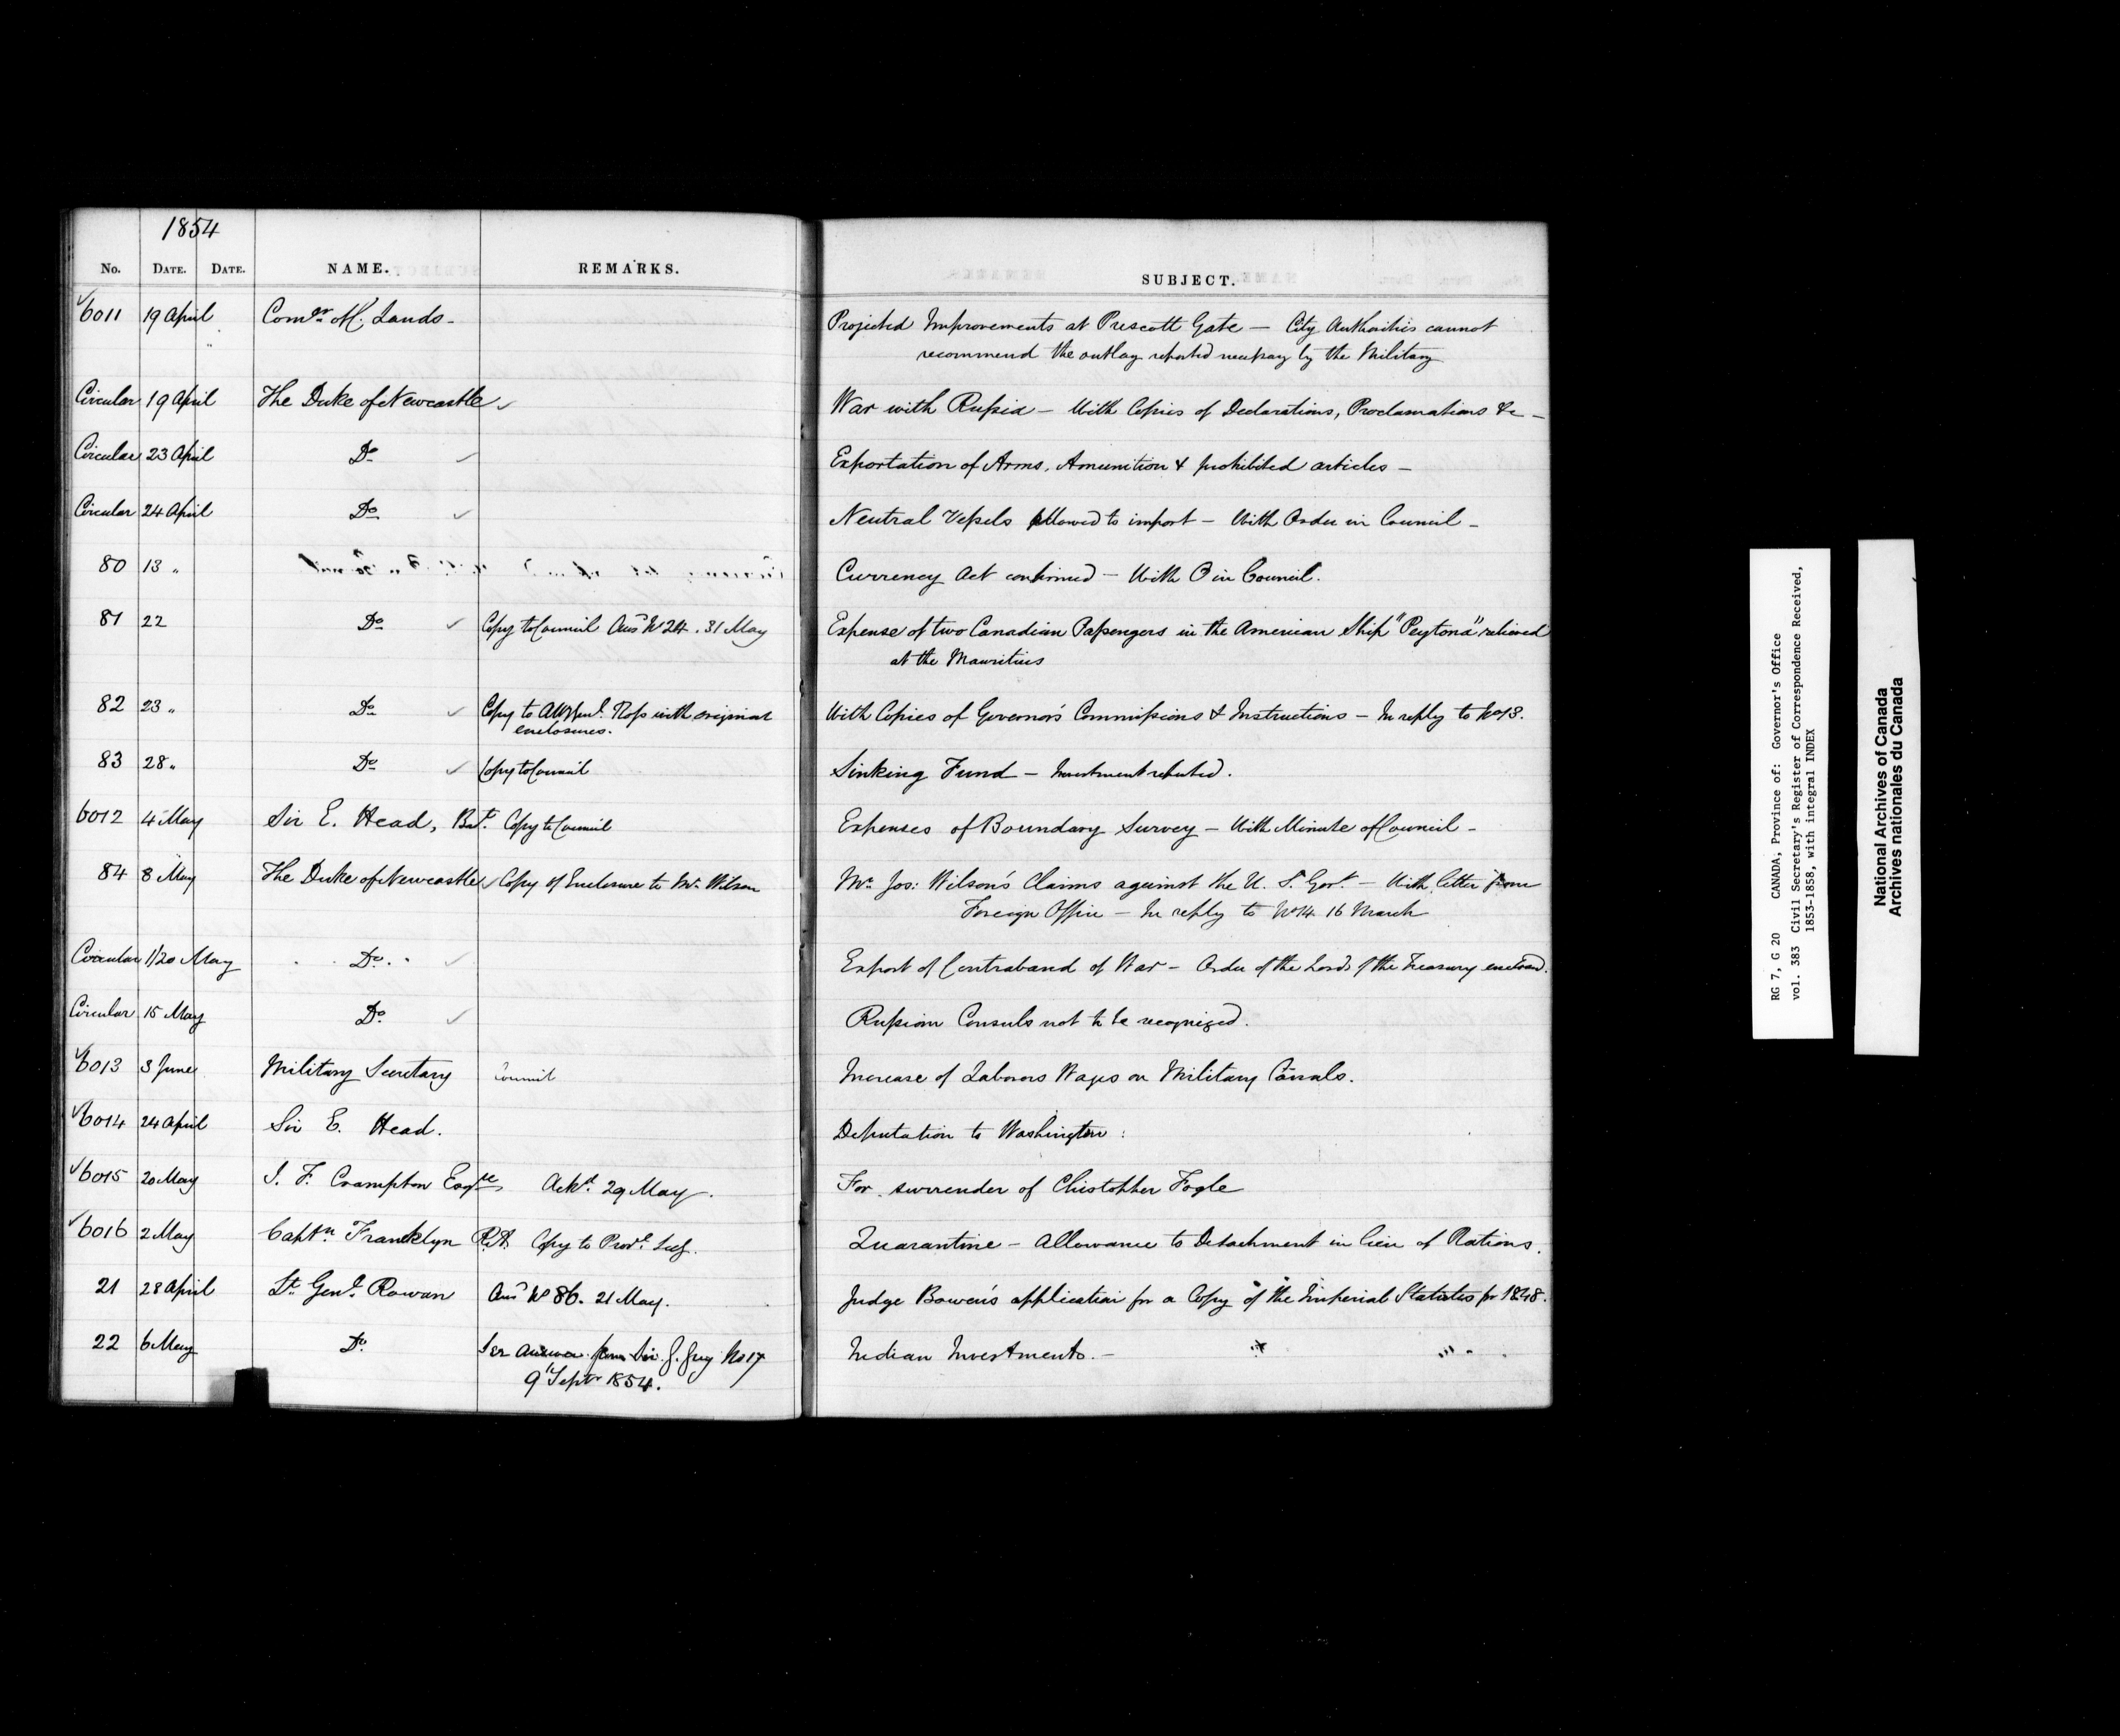 1854
No. DATE. DATE. NAME. REMARKS. SUBJECT.
6011 19 April Comr. M. Lands - Projected Improvements at Prescott Gate — City Authorities cannot
recommend the outlay reported necessary by the Military
Circular 19 April The Duke of Newcastle War with Russia — With Copies of Declarations, Proclamations &c —
Circular 23 April Do Exportation of Arms, Amunition & prohibited articles —
Circular 24 April Do Neutral Vessels allowed to import — With Order in Council —
80 13 „ Currency Act confirmed — With O in Council.
81 22 Do Copy to Council Ansd No 24. 31 May Expense of two Canadian Passengers in the American Ship "Peytona" relieved
at the Mauritius
82 23 „ Do Copy to with original With Copies of Governor's Commissions & Instructions — In reply to No 13.
enclosures.
83 28 „ Do Copy to Council Sinking Fund — Investment reported.
6012 4 May Sir E. Head, Bart. Copy to Council Expenses of Boundary Survey — With Minute of Council —
84 8 May The Duke of Newcastle Copy of Enclosure to Mr. Wilson Mr. Jos: Wilson's Claims against the U. S. Govt. — With letter from
Foreign Office — In reply to No 14 16 March
Circular 1/20 May Do. Export of Contraband of War — Order of the Lords of the Treasury enclosed.
Circular 15 May Do. Russian Consuls not to be recognized.
6013 3 June Military Secretary Council Increase of Laborers Wages on Military Canals.
6014 24 April Sir E. Head. Deputation to Washington :
6015 20 May J. F. Crampton Esqre, Ackd. 29 May. For surrender of Christopher Fogle
6016 2 May Captn. Francklyn R.A. Copy to Provl. Secy. Quarantine — Allowance to Detachment in lieu of Rations.
21 28 April Lt. Genl. Rowan Ansd No 86. 21 May. Judge Bowen's application for a Copy of the Imperial Statutes for 1848.
22 6 May Do. See answer from Sir G. Grey No 17 Indian Investments. —
9 Septr 1854.
RG 7, G 20 CANADA, Province of: Governor's Office
vol. 383 Civil Secretary's Register of Correspondence Received,
1853-1858, with integral INDEX
National Archives of Canada
Archives nationales du Canada